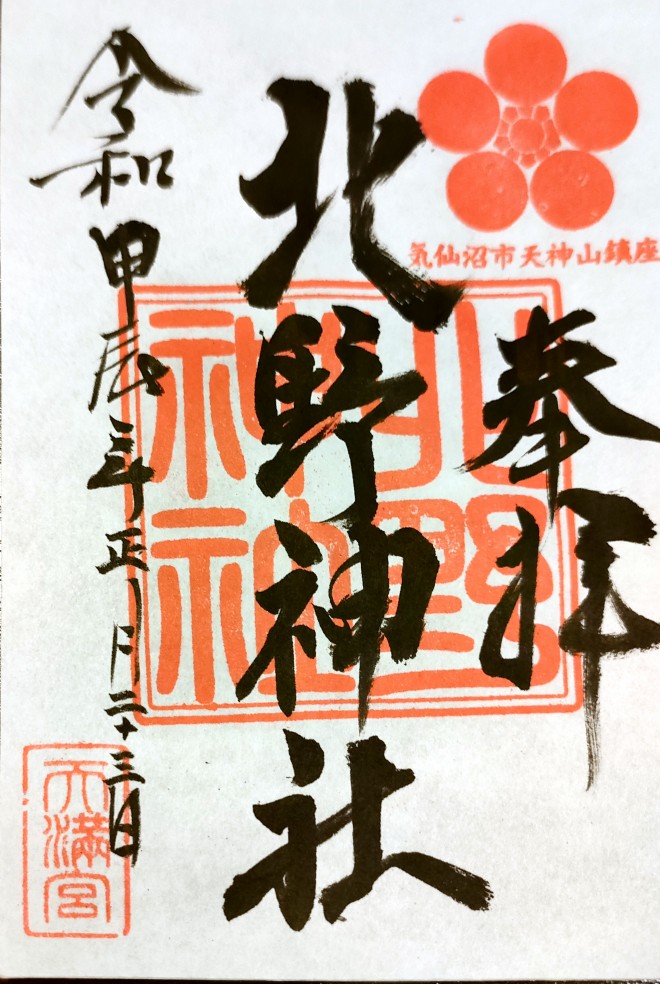 気仙沼市天神山鎮座
奉拝
北野神社
北野
神社
令和甲辰年正月二十三日
天満宮